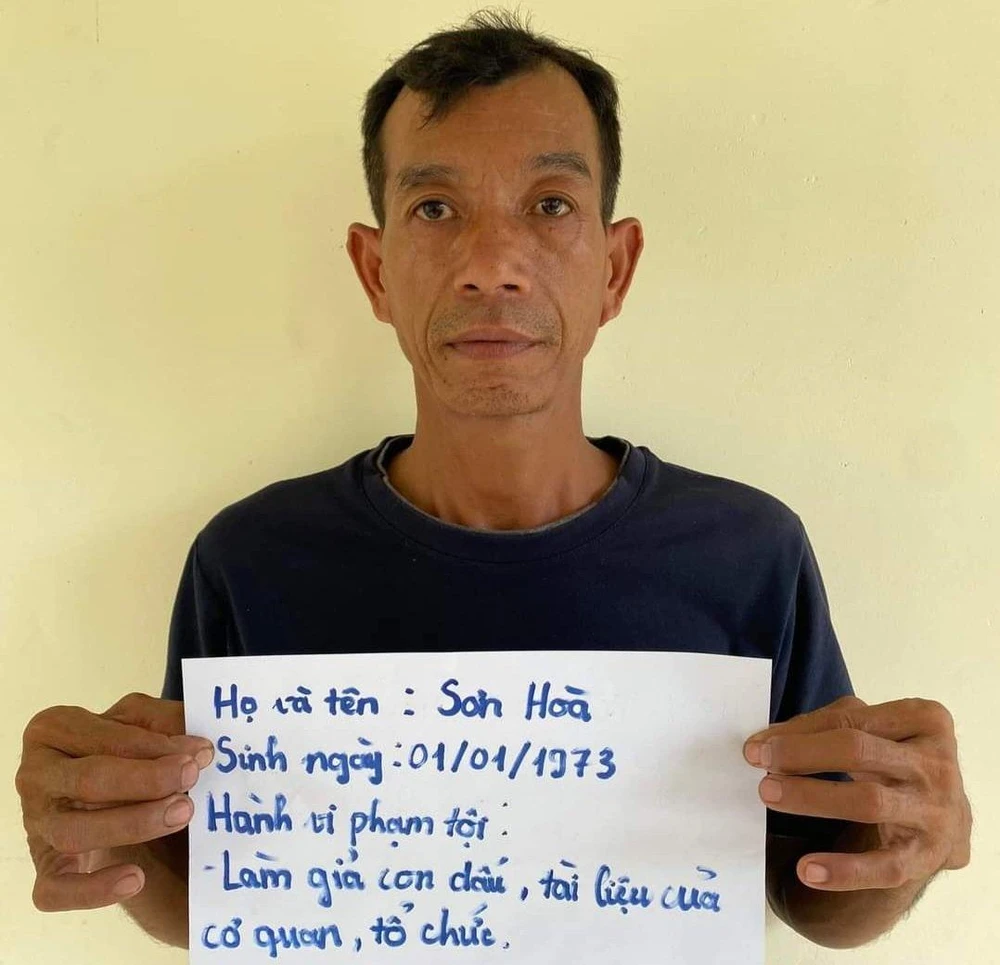 Họ và tên : Sơn Hoà
Sinh ngày : 01/01/1973
Hành vi phạm tội :
- Làm giả con dấu, tài liệu của
cơ quan, tổ chức.